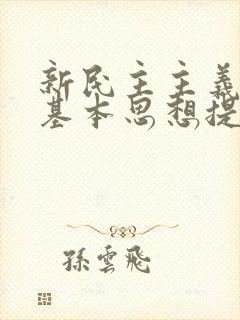 新民主主義
基本思想提
孫雲飛